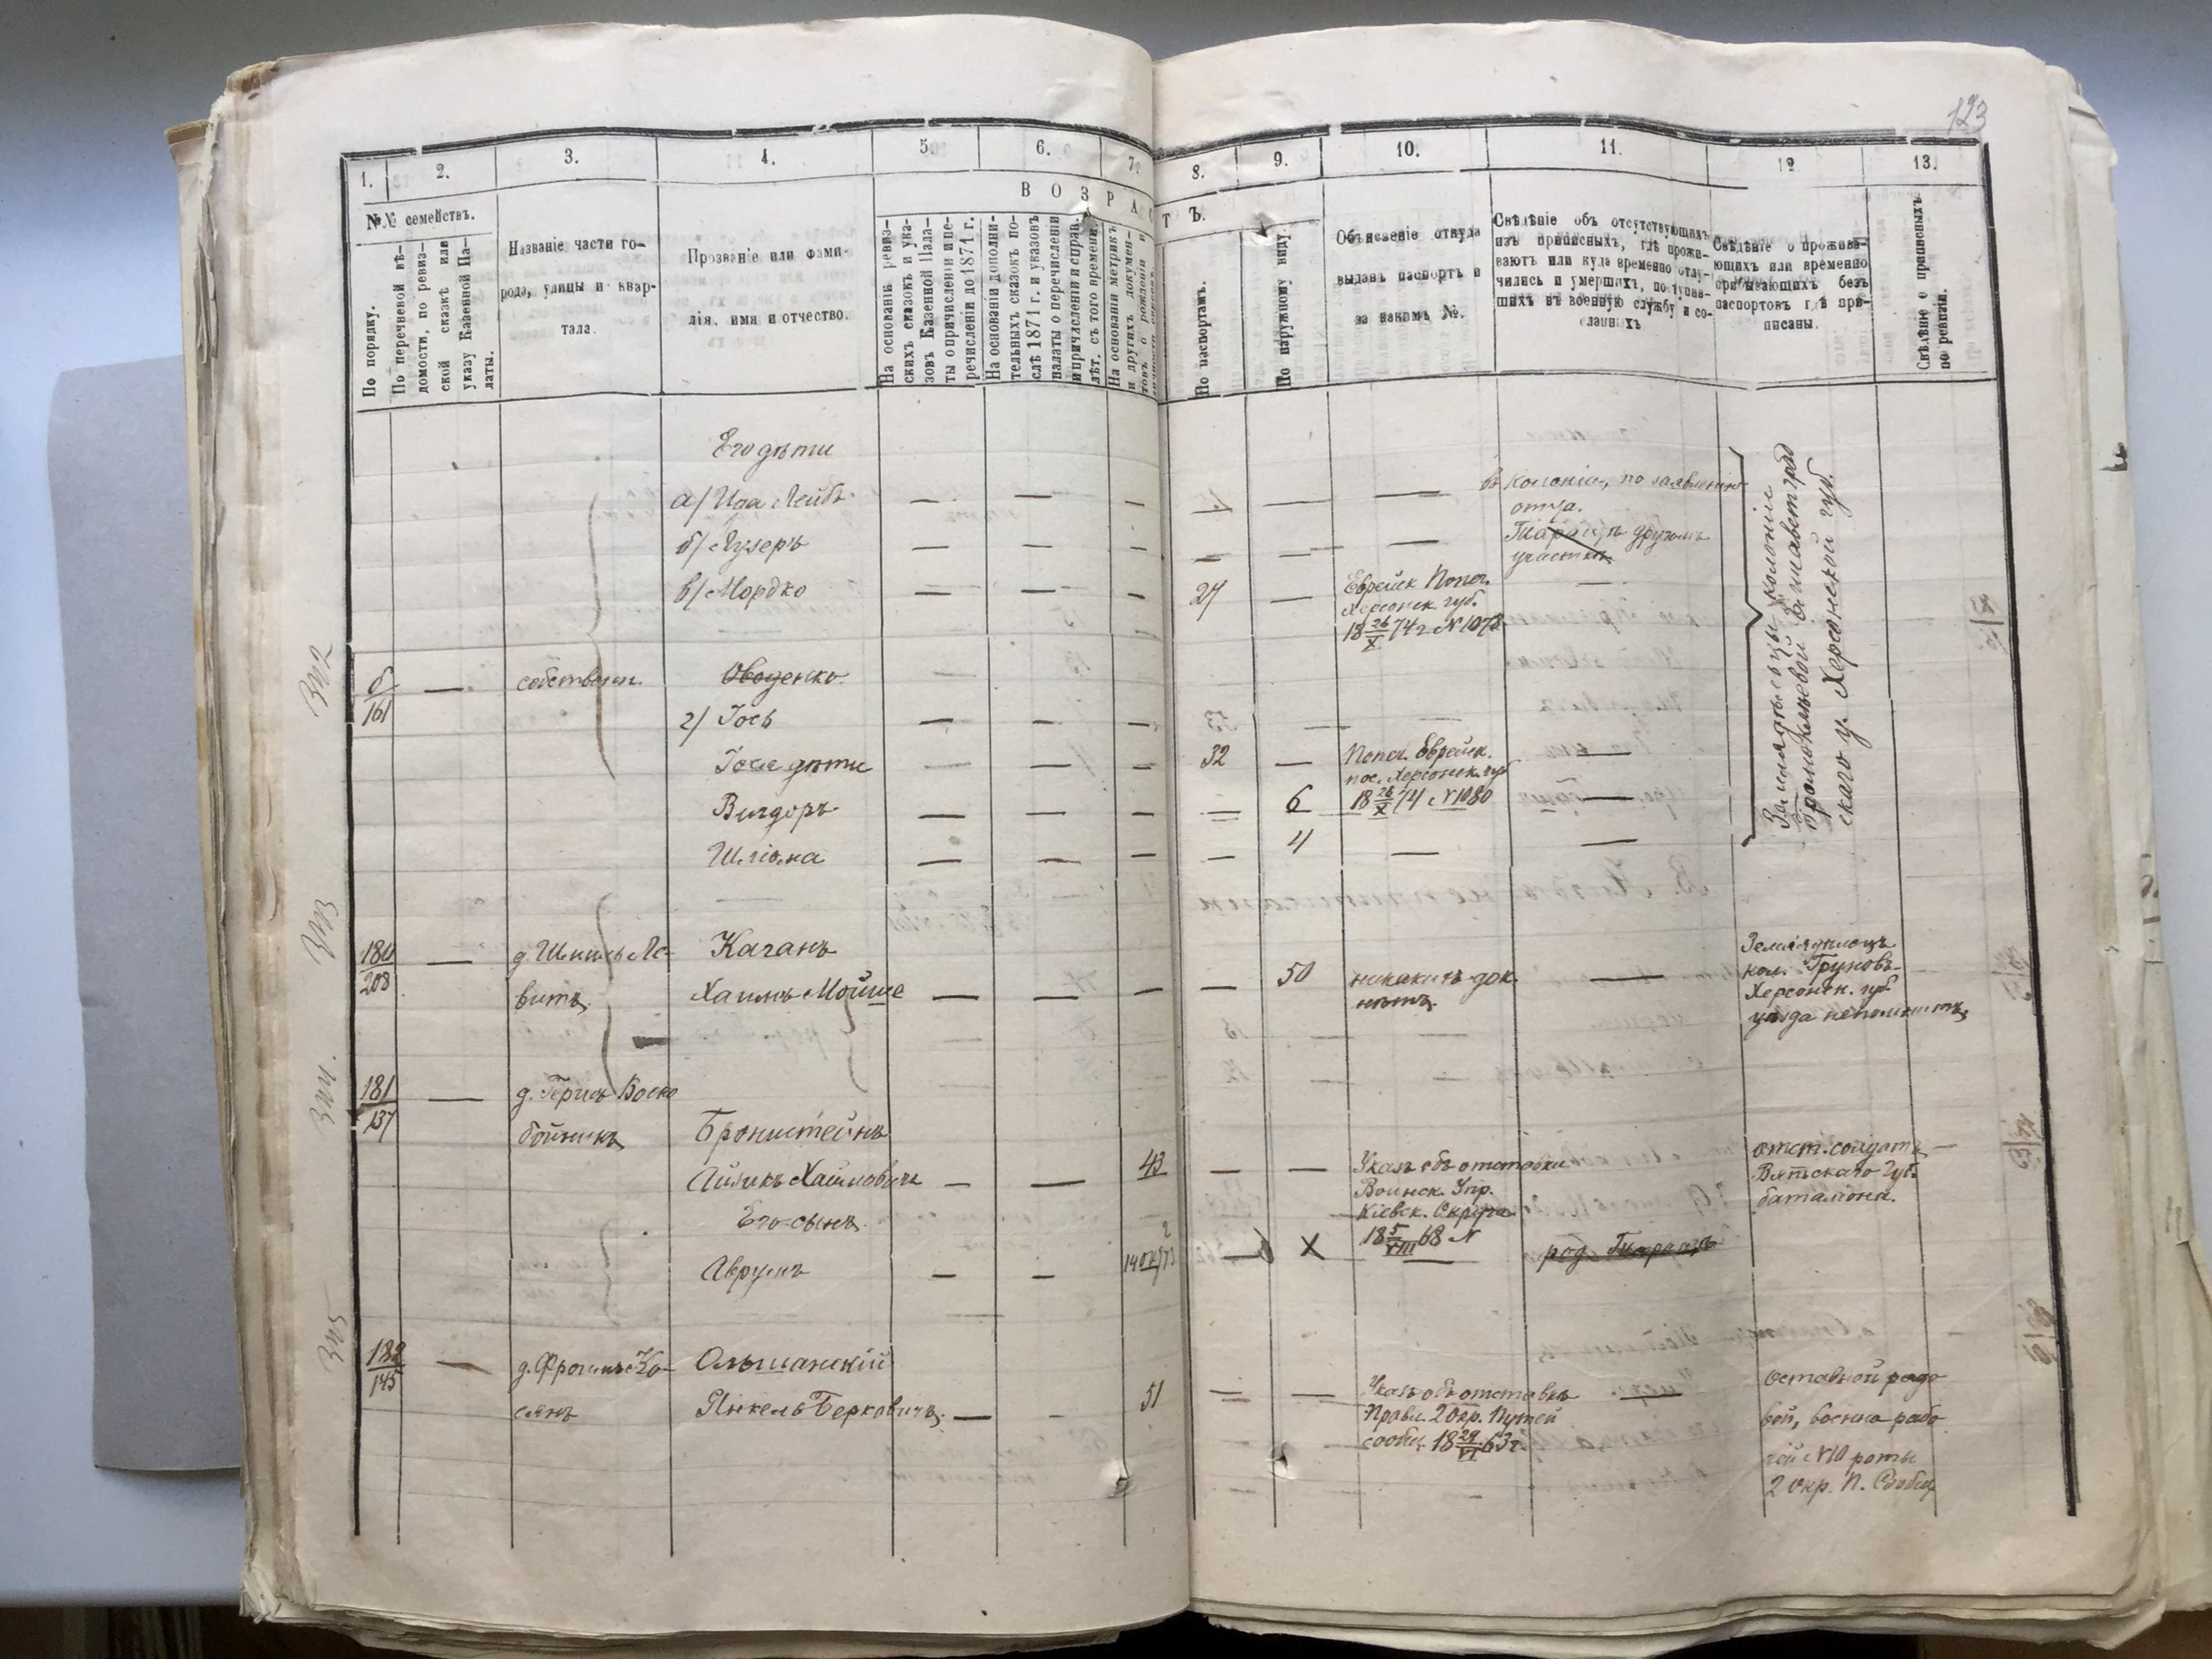 123
1.
2.
3.
4.
5.
6.
7.
8.
9.
10.
11.
12
13.
№№ семействъ.
По порядку.
По перечневой вѣ-
домости, по ревиз-
ской сказкѣ или
указу Казенной Па-
латы.
Названіе части го-
рода, улицы и квар-
тала.
Прозваніе или фами-
лія, имя и отчество.
ВОЗРАСТЪ.
На основаніи ревиз-
скихъ сказокъ и ука-
зовъ Казенной Пала-
ты о причисленіи и пе-
речисленіи до 1871 г.
На основаніи дополни-
тельныхъ сказокъ по-
слѣ 1871 г. и указовъ
палаты о перечисленіи
и причисленіи и справ.
лѣт. съ того времени.
На основаніи метрикъ
и другихъ докумен-
товъ о рожденіи и
По паспортамъ.
По наружному виду.
Объясненіе откуда
выданъ паспортъ и
за какимъ №.
Свѣдѣніе объ отсутствующихъ
изъ приписныхъ, гдѣ прожи-
ваютъ или куда временно отлу-
чились и умершихъ, поступив-
шихъ въ военную службу и со-
сланныхъ
Свѣдѣніе о прожива-
ющихъ или временно
пребывающихъ безъ
паспортовъ гдѣ при-
писаны.
Свѣдѣніе о приписныхъ
по ревизіи.
Его дѣти
а/ Ица Лейбъ
въ колоніи, по заявленію
отца.
б/ Лузеръ
другомъ
участкѣ
в/ Мордко
27
Еврейск Попеч.
Херсонск. губ.
18 26/X 74 г №1078
Земледѣльцы колоніи
Елисаветград
скаго у. Херсонской губ.
3112
б
161
собственн.
Овоценко
г/ Іось
Іося дѣти
32
Попеч. Еврейск.
пос. Херсонск. губ
18 26/X 74 №1080
Вигдоръ
6
Шліома
4
3113
180
208
д. Шмиль Ле-
витъ
Каганъ
Хаимъ Мойше
50
никакихъ док.
нѣтъ
Земледѣлецъ
кол.
Херсонск. губ.
уѣзда непомнитъ
3114.
181
137
д. Герша Воско
бойникъ
Бронштейнъ
Айзикъ Хаимовичъ
43
Указъ объ отставки
Воинск. Упр.
Кіевск. Округа
18 5/VIII 68 №
отст. солдатъ
Вятскаго Губ.
баталіона.
Его сынъ
Аврумъ
2
14 окт 73
X
род. Тиразп
3115
182
145
д. Фроимъ Ко-
сянъ
Ольшанскій
Янкель Берковичъ
51
Указъ объ отставкѣ
Правл. 2 окр. Путей
сообщ. 18 29/VI 63 г.
оставной рядо
вой, военно рабо
чей №10 роты
2 окр. П. Сообщ